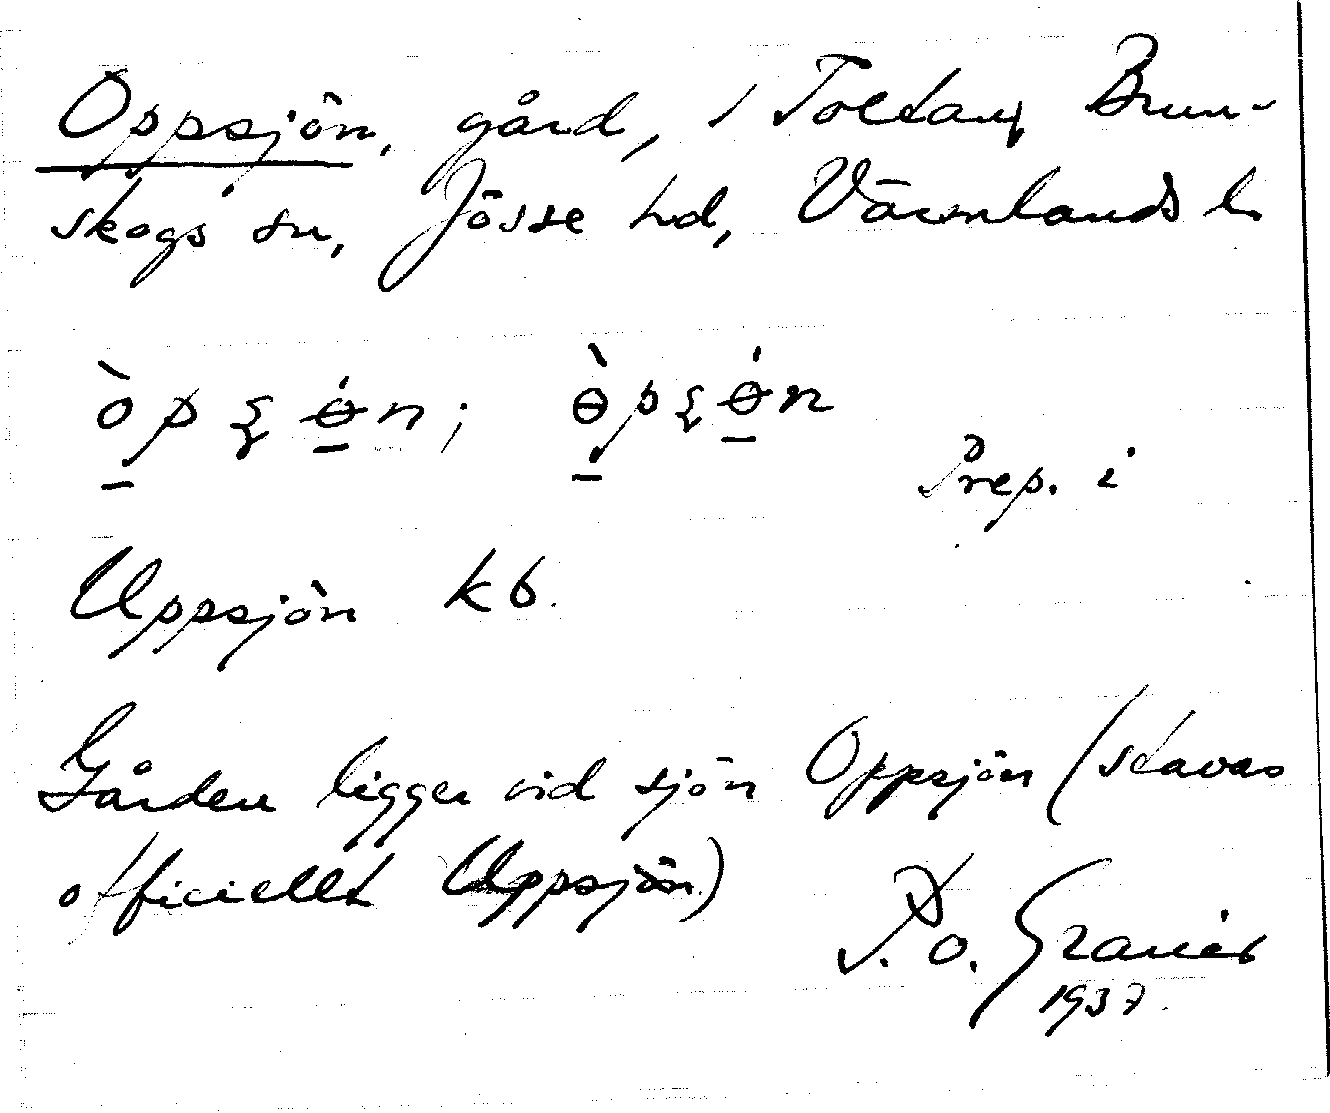 Oppsjön, gård, i Toltan, Brun-
skogs sn, Jösse hd, Värmlands l.
Prep. i
Uppsjön kb.
Gården ligger vid sjön Oppsjön (stavas
officiellt Uppsjön)
P. O. 
1937.